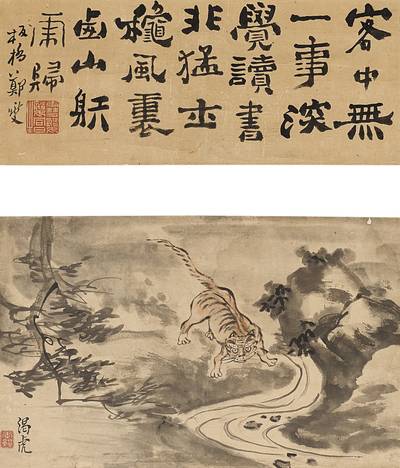 客中無
一事深
覺讀書
非猛士
龝風裏
鹵山射
虎歸
板橋鄭燮
渴虎